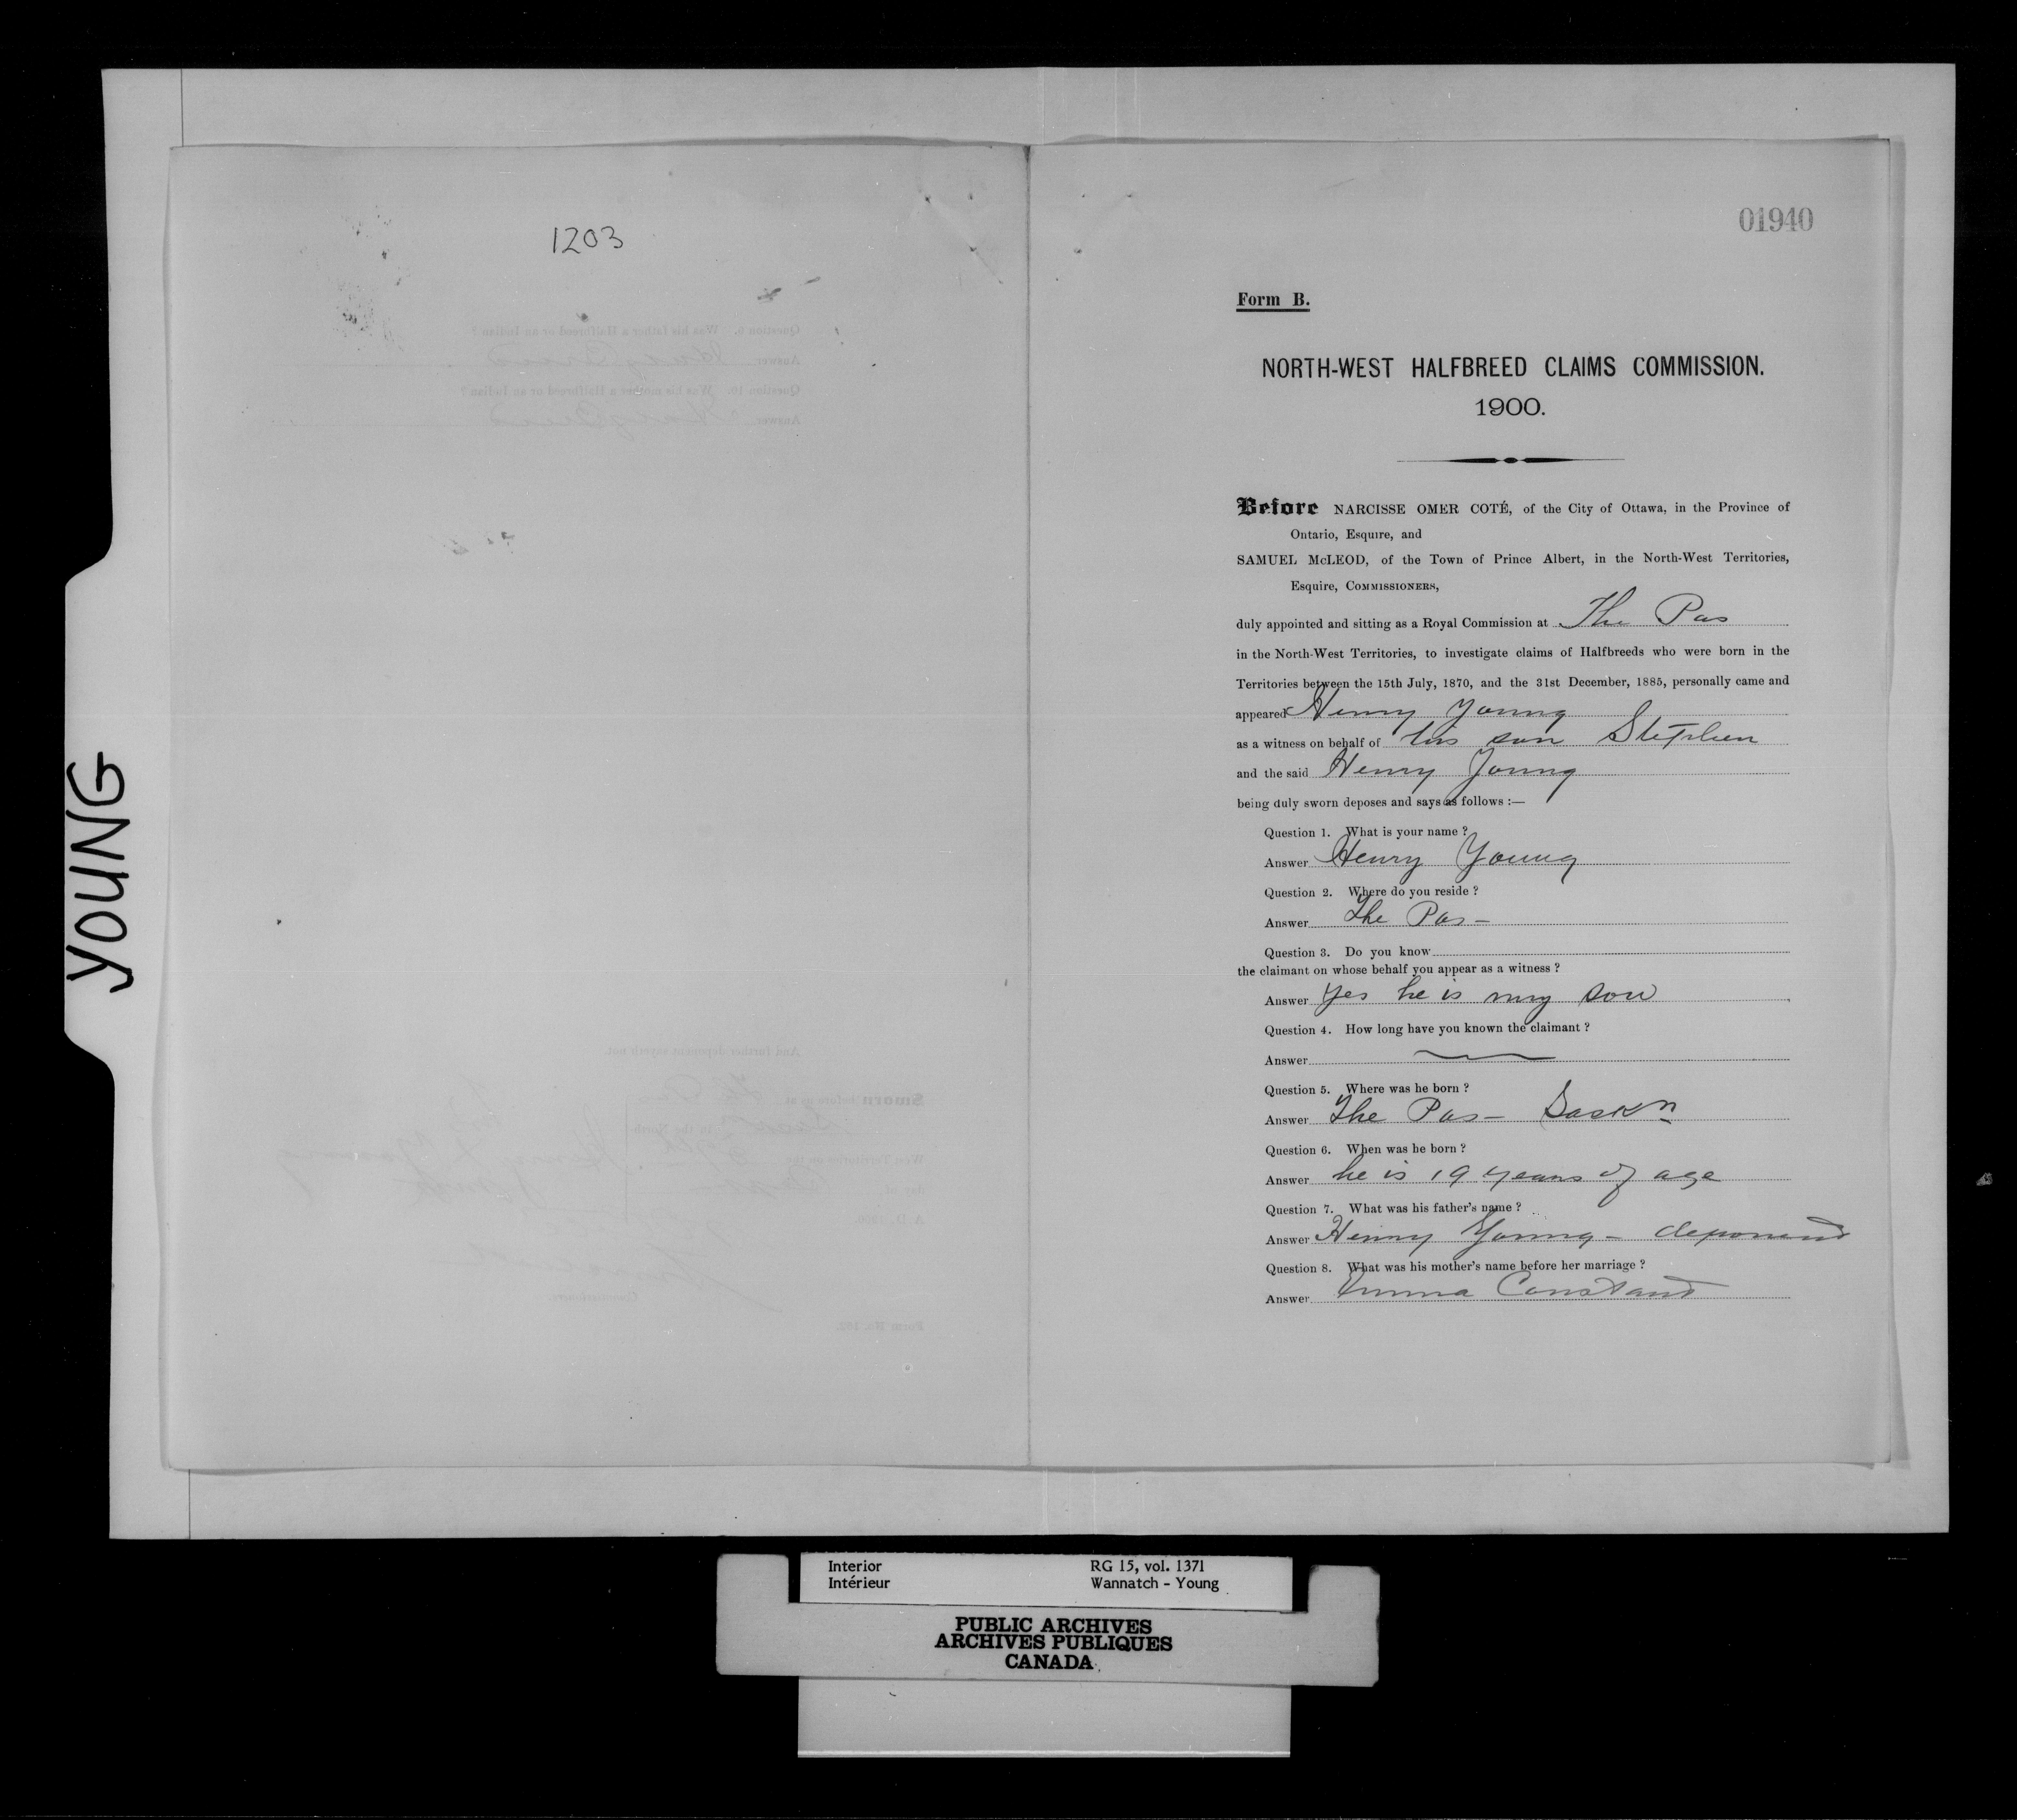 YOUNG
1203
01940
Form B.
NORTH-WEST HALFBREED CLAIMS COMMISSION.
1900.
Before NARCISSE OMER COTÉ, of the City of Ottawa, in the Province of
Ontario, Esquire, and
SAMUEL McLEOD, of the Town of Prince Albert, in the North-West Territories,
Esquire, COMMISSIONERS,
duly appointed and sitting as a Royal Commission at The Pas
in the North-West Territories, to investigate claims of Halfbreeds who were born in the
Territories between the 15th July, 1870, and the 31st December, 1885, personally came and
appeared Henry Young
as a witness on behalf of his son Stephen
and the said Henry Young
being duly sworn deposes and says as follows :—
Question 1. What is your name ?
Answer Henry Young
Question 2. Where do you reside ?
Answer The Pas –
Question 3. Do you know
the claimant on whose behalf you appear as a witness ?
Answer Yes he is my son
Question 4. How long have you known the claimant ?
Answer
Question 5. Where was he born ?
Answer The Pas – Saskn
Question 6. When was he born ?
Answer he is 19 years of age
Question 7. What was his father's name ?
Answer Henry Young – deponent
Question 8. What was his mother's name before her marriage ?
Answer Emma Constant
Interior
Intérieur
RG 15, vol. 1371
Wannatch - Young
PUBLIC ARCHIVES
ARCHIVES PUBLIQUES
CANADA